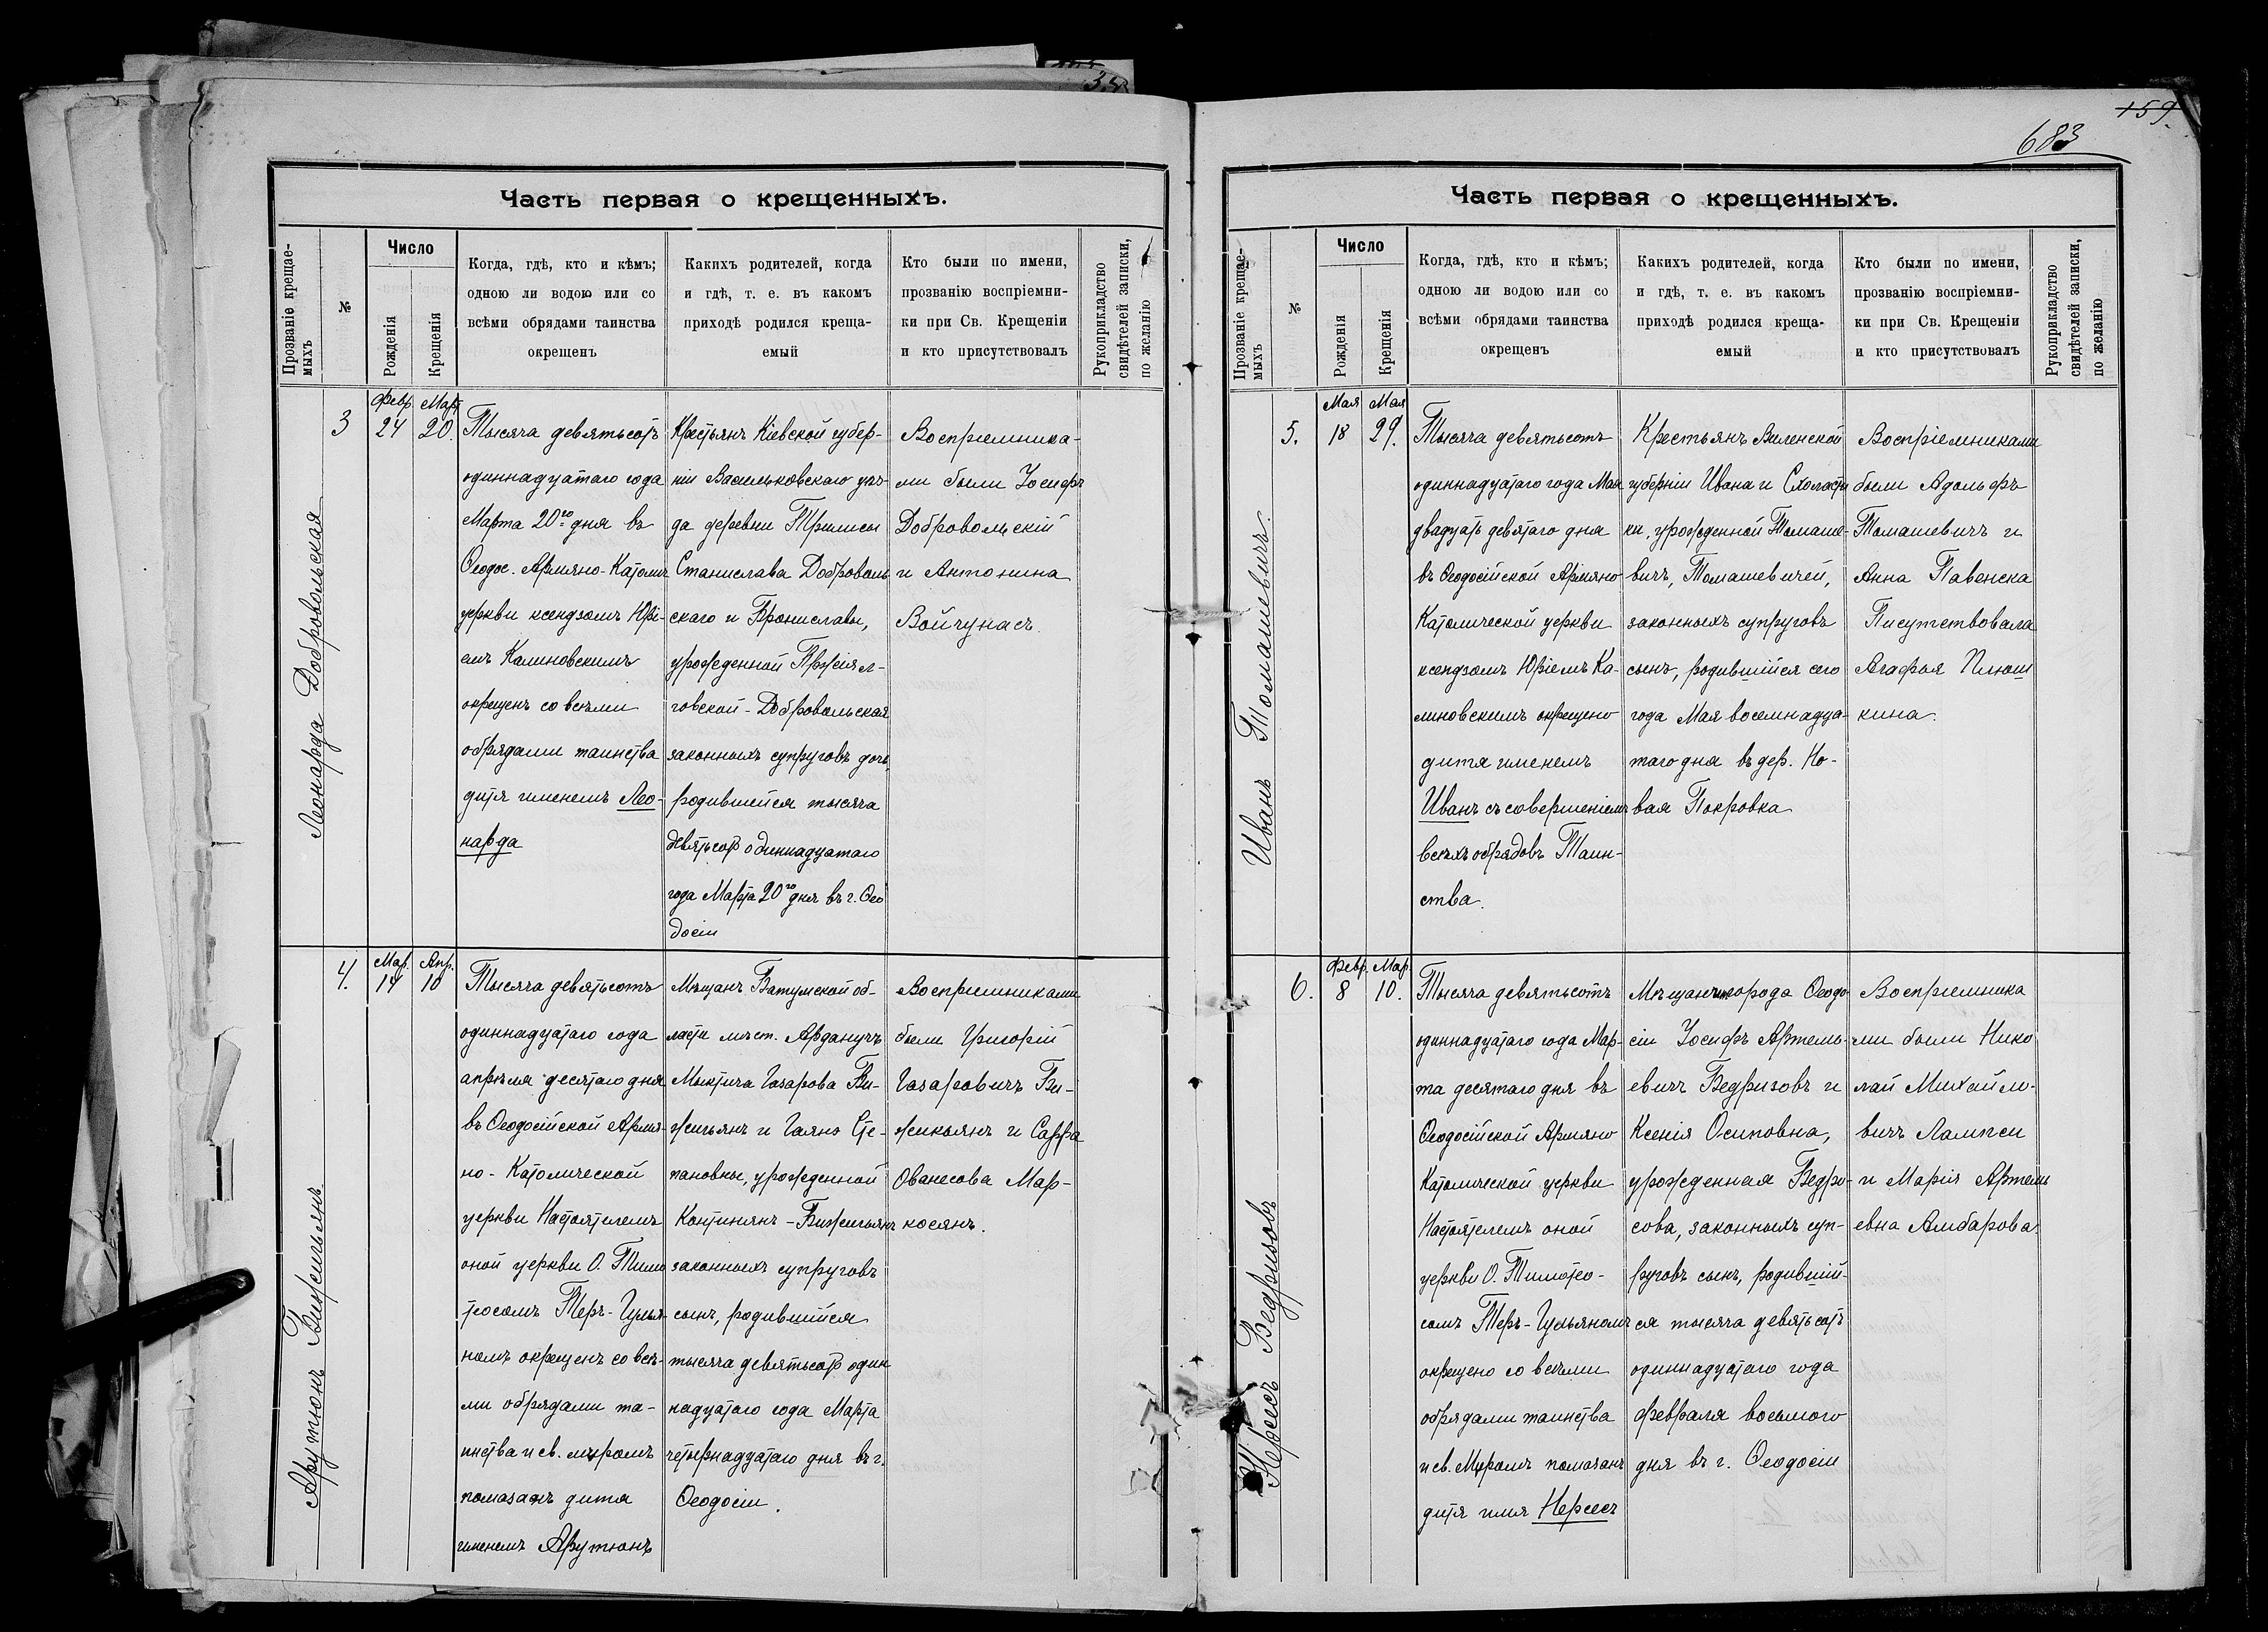 159.
683
Часть первая о крещенныхъ.
Прозваніе крещае-
мыхъ
№
Число
Рожденія
Крещенія
Когда, гдѣ, кто и кѣмъ;
одною ли водою или со
всѣми обрядами таинства
окрещенъ
Какихъ родителей, когда
и гдѣ, т. е. въ какомъ
приходѣ родился креща-
емый
Кто были по имени,
прозванію воспріемни-
ки при Св. Крещеніи
и кто присутствовалъ
Рукоприкладство
свидѣтелей записки,
по желанію
Леонарда Добровольская
3
Февр.
24
Март
20.
Тысяча девятьсотъ
одиннадцатаго года
Марта 20го дня въ
Ѳеодос. Армяно-Католич
церкви ксендзомъ Юрі-
емъ Калиновскимъ
окрещенъ со всѣми
обрядами таинства
дитя именемъ Лео-
нарда
Крестьянъ Кіевской губер-
ніи Васильковскаго уѣз-
да деревни Трилисы
Станислава Доброволь
скаго и Брониславы,
урожденной Пржіял-
говской-Добровольская
законныхъ супруговъ дочь,
родившейся тысяча
девятьсот одиннадцатаго
года Марта 20го дня въ г. Ѳео
досіи
Воспріемника-
ми были Іосифъ
Добровольскій
и Антонина
Войчунасъ.
Арутюнъ Бижикьянъ
4.
Мар.
14
Апр.
10
Тысяча девятьсотъ
одиннадцатаго года
апрѣля десятаго дня
въ Ѳеодосійской Армя-
но-Католической
церкви Настоятелемъ
оной церкви О. Тимо
теосомъ Теръ-Гулья-
номъ окрещенъ со всѣ-
ми обрядами та-
инства и св. мѵромъ
помазанъ дитя
именемъ Арутюнъ
Мѣщанъ Батумской об-
ласти мѣст. Ардануч
Мкртича Газарова Би-
жикьянъ и Гаянэ Сте-
пановны, урожденной
Континянъ-Бижикьянъ
законныхъ супруговъ
сынъ, родившійся
тысяча девятьсот один
надцатаго года Марта
четырнадцатаго дня въ г.
Ѳеодосіи.
Воспріемниками
были Григорій
Газаровичъ Би-
жикьянъ и Сарра
Ованесова Мар-
косянъ.
Часть первая о крещенныхъ.
Прозваніе крещае-
мыхъ
№
Число
Рожденія
Крещенія
Когда, гдѣ, кто и кѣмъ;
одною ли водою или со
всѣми обрядами таинства
окрещенъ
Какихъ родителей, когда
и гдѣ, т. е. въ какомъ
приходѣ родился креща-
емый
Кто были по имени,
прозванію воспріемни-
ки при Св. Крещеніи
и кто присутствовалъ
Рукоприкладство
свидѣтелей записки,
по желанію
Иванъ Томашевичъ.
5.
Мая
18
Мая
29.
Тысяча девятьсотъ
одиннадцатаго года Мая
двадцать девятаго дня
въ Ѳеодосійской Армяно
Католической церкви
ксендзомъ Юріемъ Ка-
линовскимъ окрещено
дитя именемъ
Иванъ съ совершеніемъ
всѣхъ обрядовъ Таин-
ства.
Крестьянъ Виленской
губерніи Ивана и Схоласти
ки, урожденной Томаше-
вичъ, Томашевичей,
законныхъ супруговъ
сынъ, родившійся сего
года Мая восемнадца-
таго дня въ дер. Но-
вая Покровка
Воспріемниками
были Адольфъ
Томашевичъ и
Анна Павенска
Писутствовала
Агафья Плюш
кина.
Нерсесъ Бедризовъ
6.
Февр.
8
Мар.
10.
Тысяча девятьсотъ
одиннадцатаго года Мар-
та десятаго дня въ
Ѳеодосійской Армяно
Католической церкви
Настоятелемъ оной
церкви О. Тимотео-
сомъ Теръ-Гульяномъ
окрещено со всѣми
обрядами таинства
и св. Мѵромъ помазанъ
дитя имя Нерсесъ
Мѣщанъ города Ѳеодо
сіи Іосифъ Артемь-
евичъ Бедризовъ и
Ксенія Осиповна,
урожденная Бедро-
сова, законныхъ суп-
руговъ сынъ, родившій-
ся тысяча девятьсотъ
одиннадцатаго года
февраля восьмого
дня въ г. Ѳеодосіи
Воспріемника
ми были Нико
лай Михайло-
вичъ Лампси
и Марія Артемь
евна Амбарова.